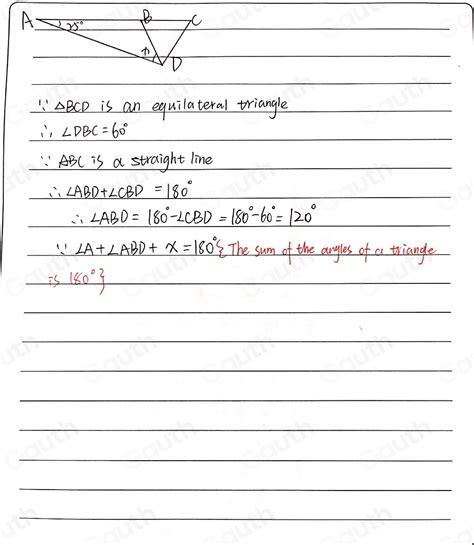 A 25° B C
x D
∵ △BCD is an equilateral triangle
∴ ∠DBC = 60°
∵ ABC is a straight line
∴ ∠ABD + ∠CBD = 180°
∴ ∠ABD = 180° - ∠CBD = 180° - 60° = 120°
∵ ∠A + ∠ABD + x = 180° {The sum of the angles of a triangle
is 180°}